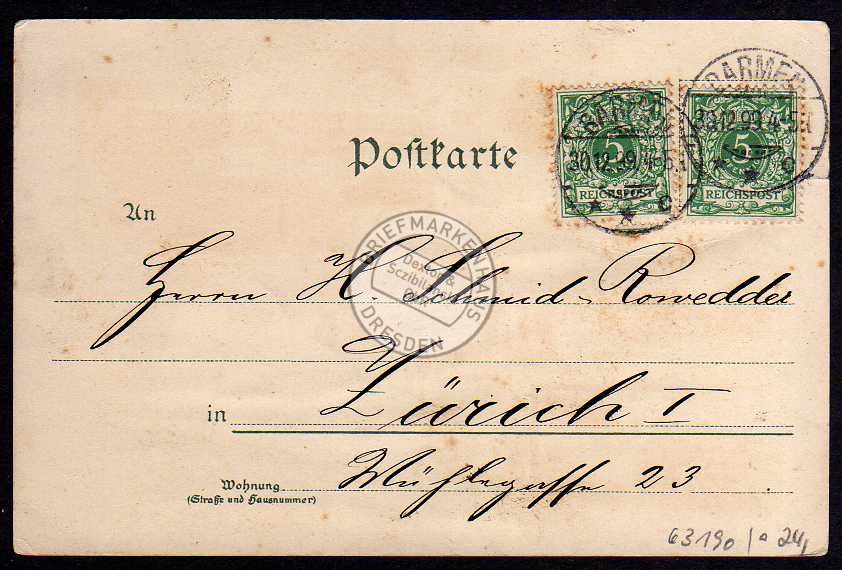 Postkarte
BARMEN
30.12.99.4-5N
* * C
5
REICHSPOST
BARMEN
30.12.99.4-5N
* * C
5
REICHSPOST
An
Herrn H. Schmid-Rowedder
in Zürich I
Wohnung
(Straße und Hausnummer)
Mühlegasse 23
BRIEFMARKENHAUS
Dexlor &
Sczibilanski
DRESDEN
63190
24,